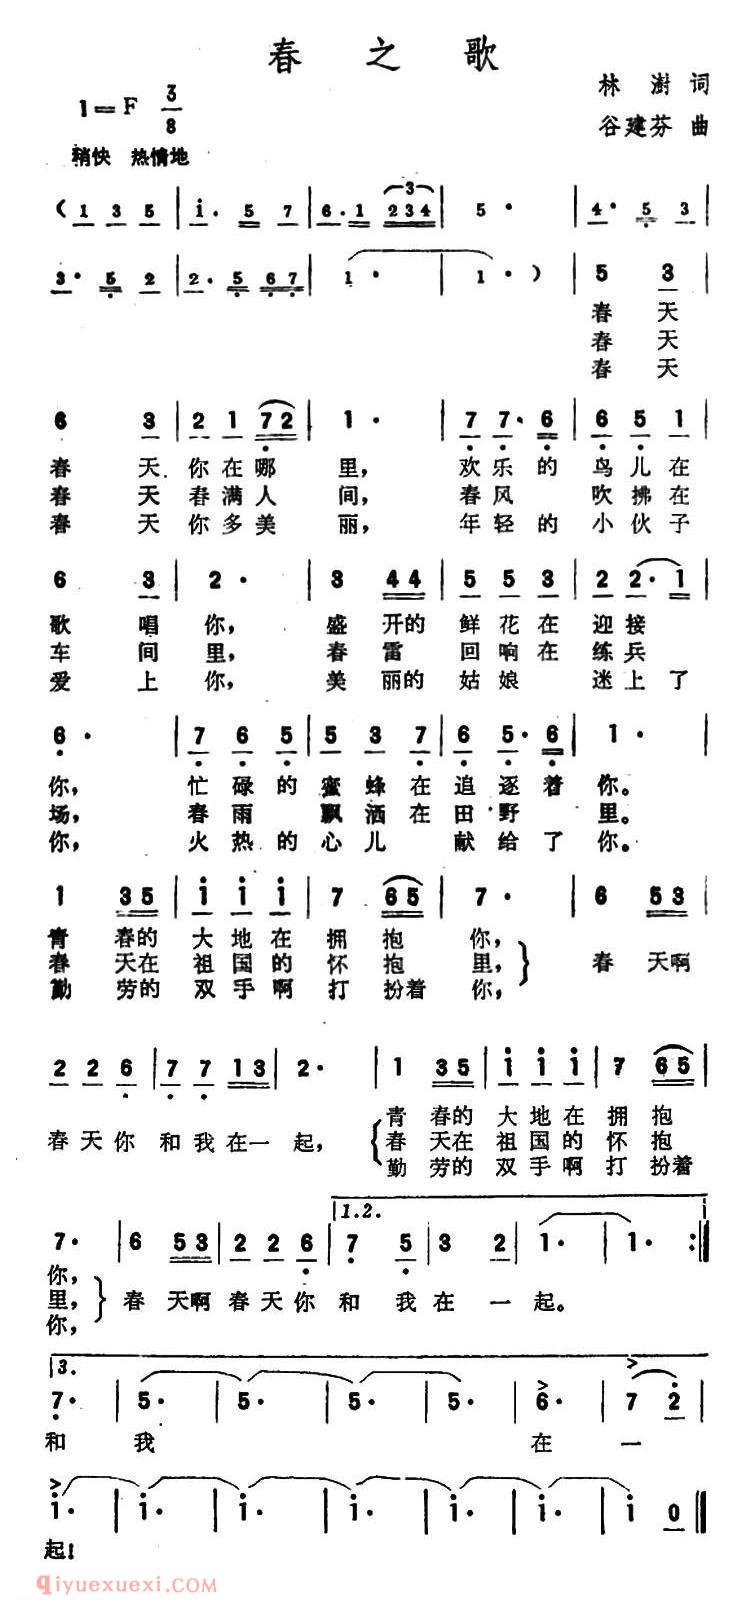 春之歌
林澍 词
1=F 3/8
谷建芬 曲
稍快 热情地
( 1 3 5 | i· 5 7 | 6·1 234 | 5· | 4· 5 3 |
3· 5 2 | 2·5 67 | 1· | 1· ) | 5 3 |
春 天
春 天
春 天
6 3 | 2 1 72 | 1· | 7 7·6 | 6 5 1 |
春 天 你在哪 里, 欢乐的 鸟儿在
春 天 春满人 间, 春风 吹拂在
春 天 你多美 丽, 年轻的 小伙子
6 3 | 2· | 3 44 | 5 5 3 | 2 2·1 |
歌 唱 你, 盛 开的 鲜花在 迎接
车 间 里, 春 雷 回响在 练兵
爱 上 你, 美 丽的 姑娘 迷上了
6· | 7 6 5 | 5 3 7 | 6 5·6 | 1· |
你, 忙碌的 蜜蜂在 追逐着 你。
场, 春雨 飘洒在 田野 里。
你, 火热的 心儿 献给了 你。
1 35 | i i i | 7 65 | 7· | 6 53 |
青 春的 大地在 拥抱 你,
春 天在 祖国的 怀抱 里, 春 天啊
勤 劳的 双手啊 打扮着 你,
2 2 6 | 7 7 13 | 2· | 1 35 | i i i | 7 65 |
青 春的 大地在 拥抱
春天你 和我在一 起, 春 天在 祖国的 怀抱
勤 劳的 双手啊 打扮着
1.2.
7· | 6 53 | 2 2 6 | 7 5 | 3 2 | 1· | 1· :||
你,
里, 春 天啊 春天你 和 我 在 一 起。
你,
3.
7· | 5· | 5· | 5· | 5· | 6· | 7 2 |
和 我 在 一
i· | i· | i· | i· | i· | i· | i 0 |
起!
qiyuexuexi.COM